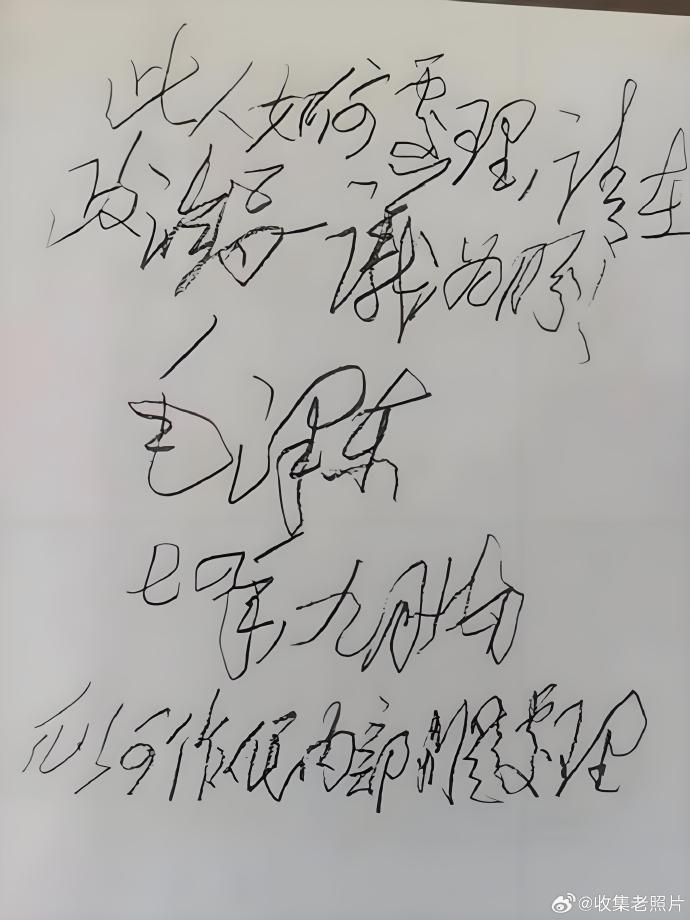 此人如何处理，请在
政治局一议为盼
毛泽东
七四年九月
作人内部问题处理
@收集老照片